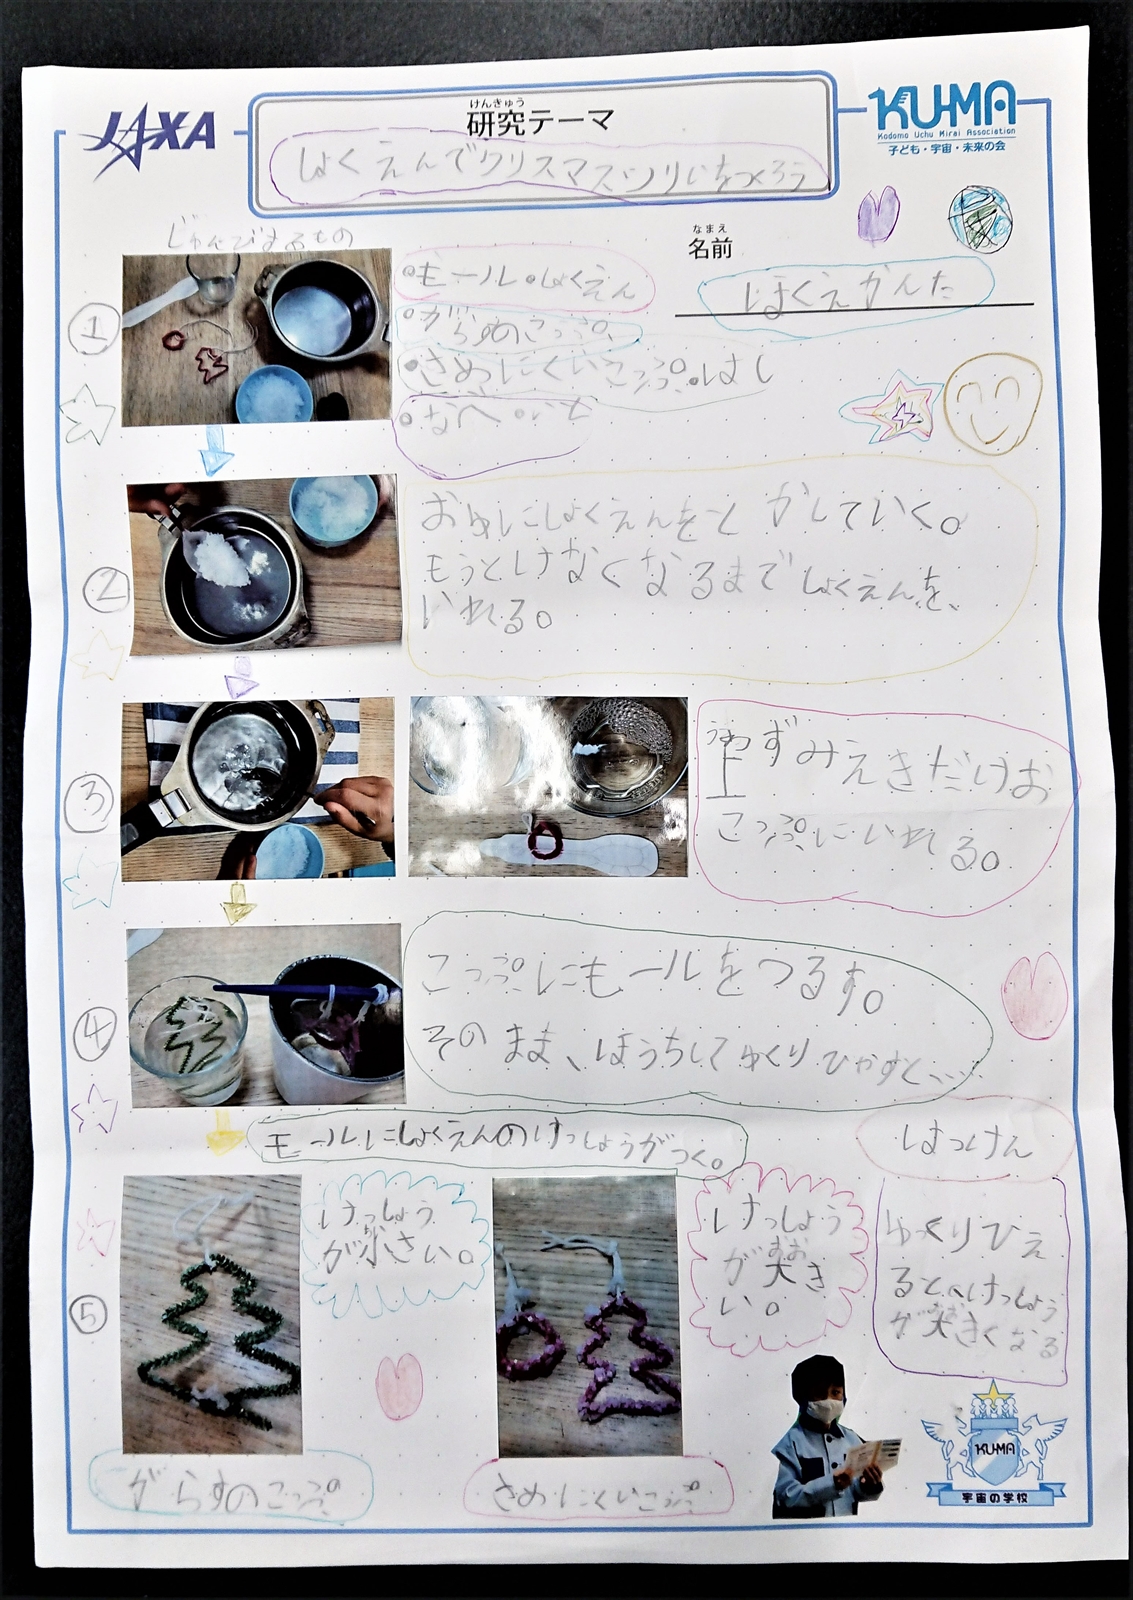 JAXA
けんきゅう
研究テーマ
しょくえんでクリスマスツリーをつくろう
KU-MA
Kodomo Uchu Mirai Association
子ども・宇宙・未来の会
じゅんびするもの
なまえ
名前
ほくえかんた
①
・モール・しょくえん
・がらすのこっぷ
・さめにくいこっぷ・はし
・なべ・いと
②
おゆにしょくえんをとかしていく。
もうとけなくなるまでしょくえんを、
いれる。
③
うわ
上ずみえきだけお
こっぷにいれる。
④
こっぷにモールをつるす。
そのまま、ほうちしてゆくりひやすと、、、、
モールにしょくえんのけっしょうがつく。
⑤
けっしょう
が小さい。
けっしょう
おお
が大き
い。
はっけん
ゆっくりひえ
ると、けっしょう
おお
が大きくなる
がらすのこっぷ
さめにくいこっぷ
KU-MA
宇宙の学校